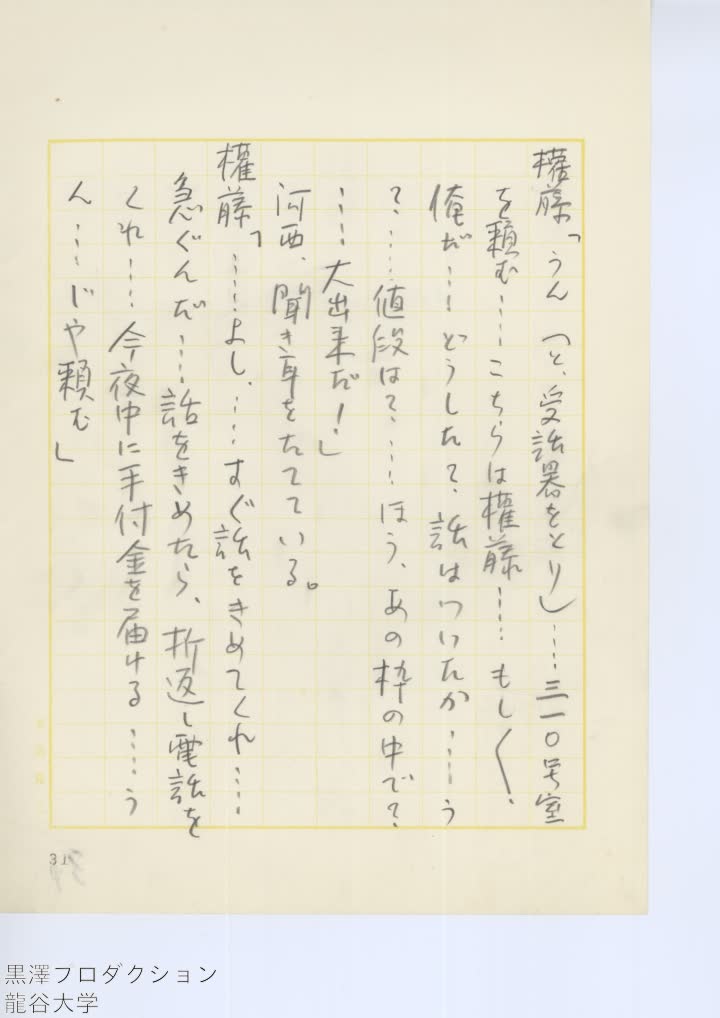 權藤「うん（と、受話器をとり）……三一〇号室
を頼む……こちらは權藤……もし〱、
俺だ……どうした？、話はついたか……う
？……値段は？……ほう、あの枠の中で？
……大出来だ！」
河西、聞き耳をたてている。
權藤「……よし、……すぐ話をきめてくれ……
急ぐんだ……話をきめたら、折返し電話を
くれ……今夜中に手付金を届ける……う
ん……じや頼む」
31
黒澤プロダクション
龍谷大学